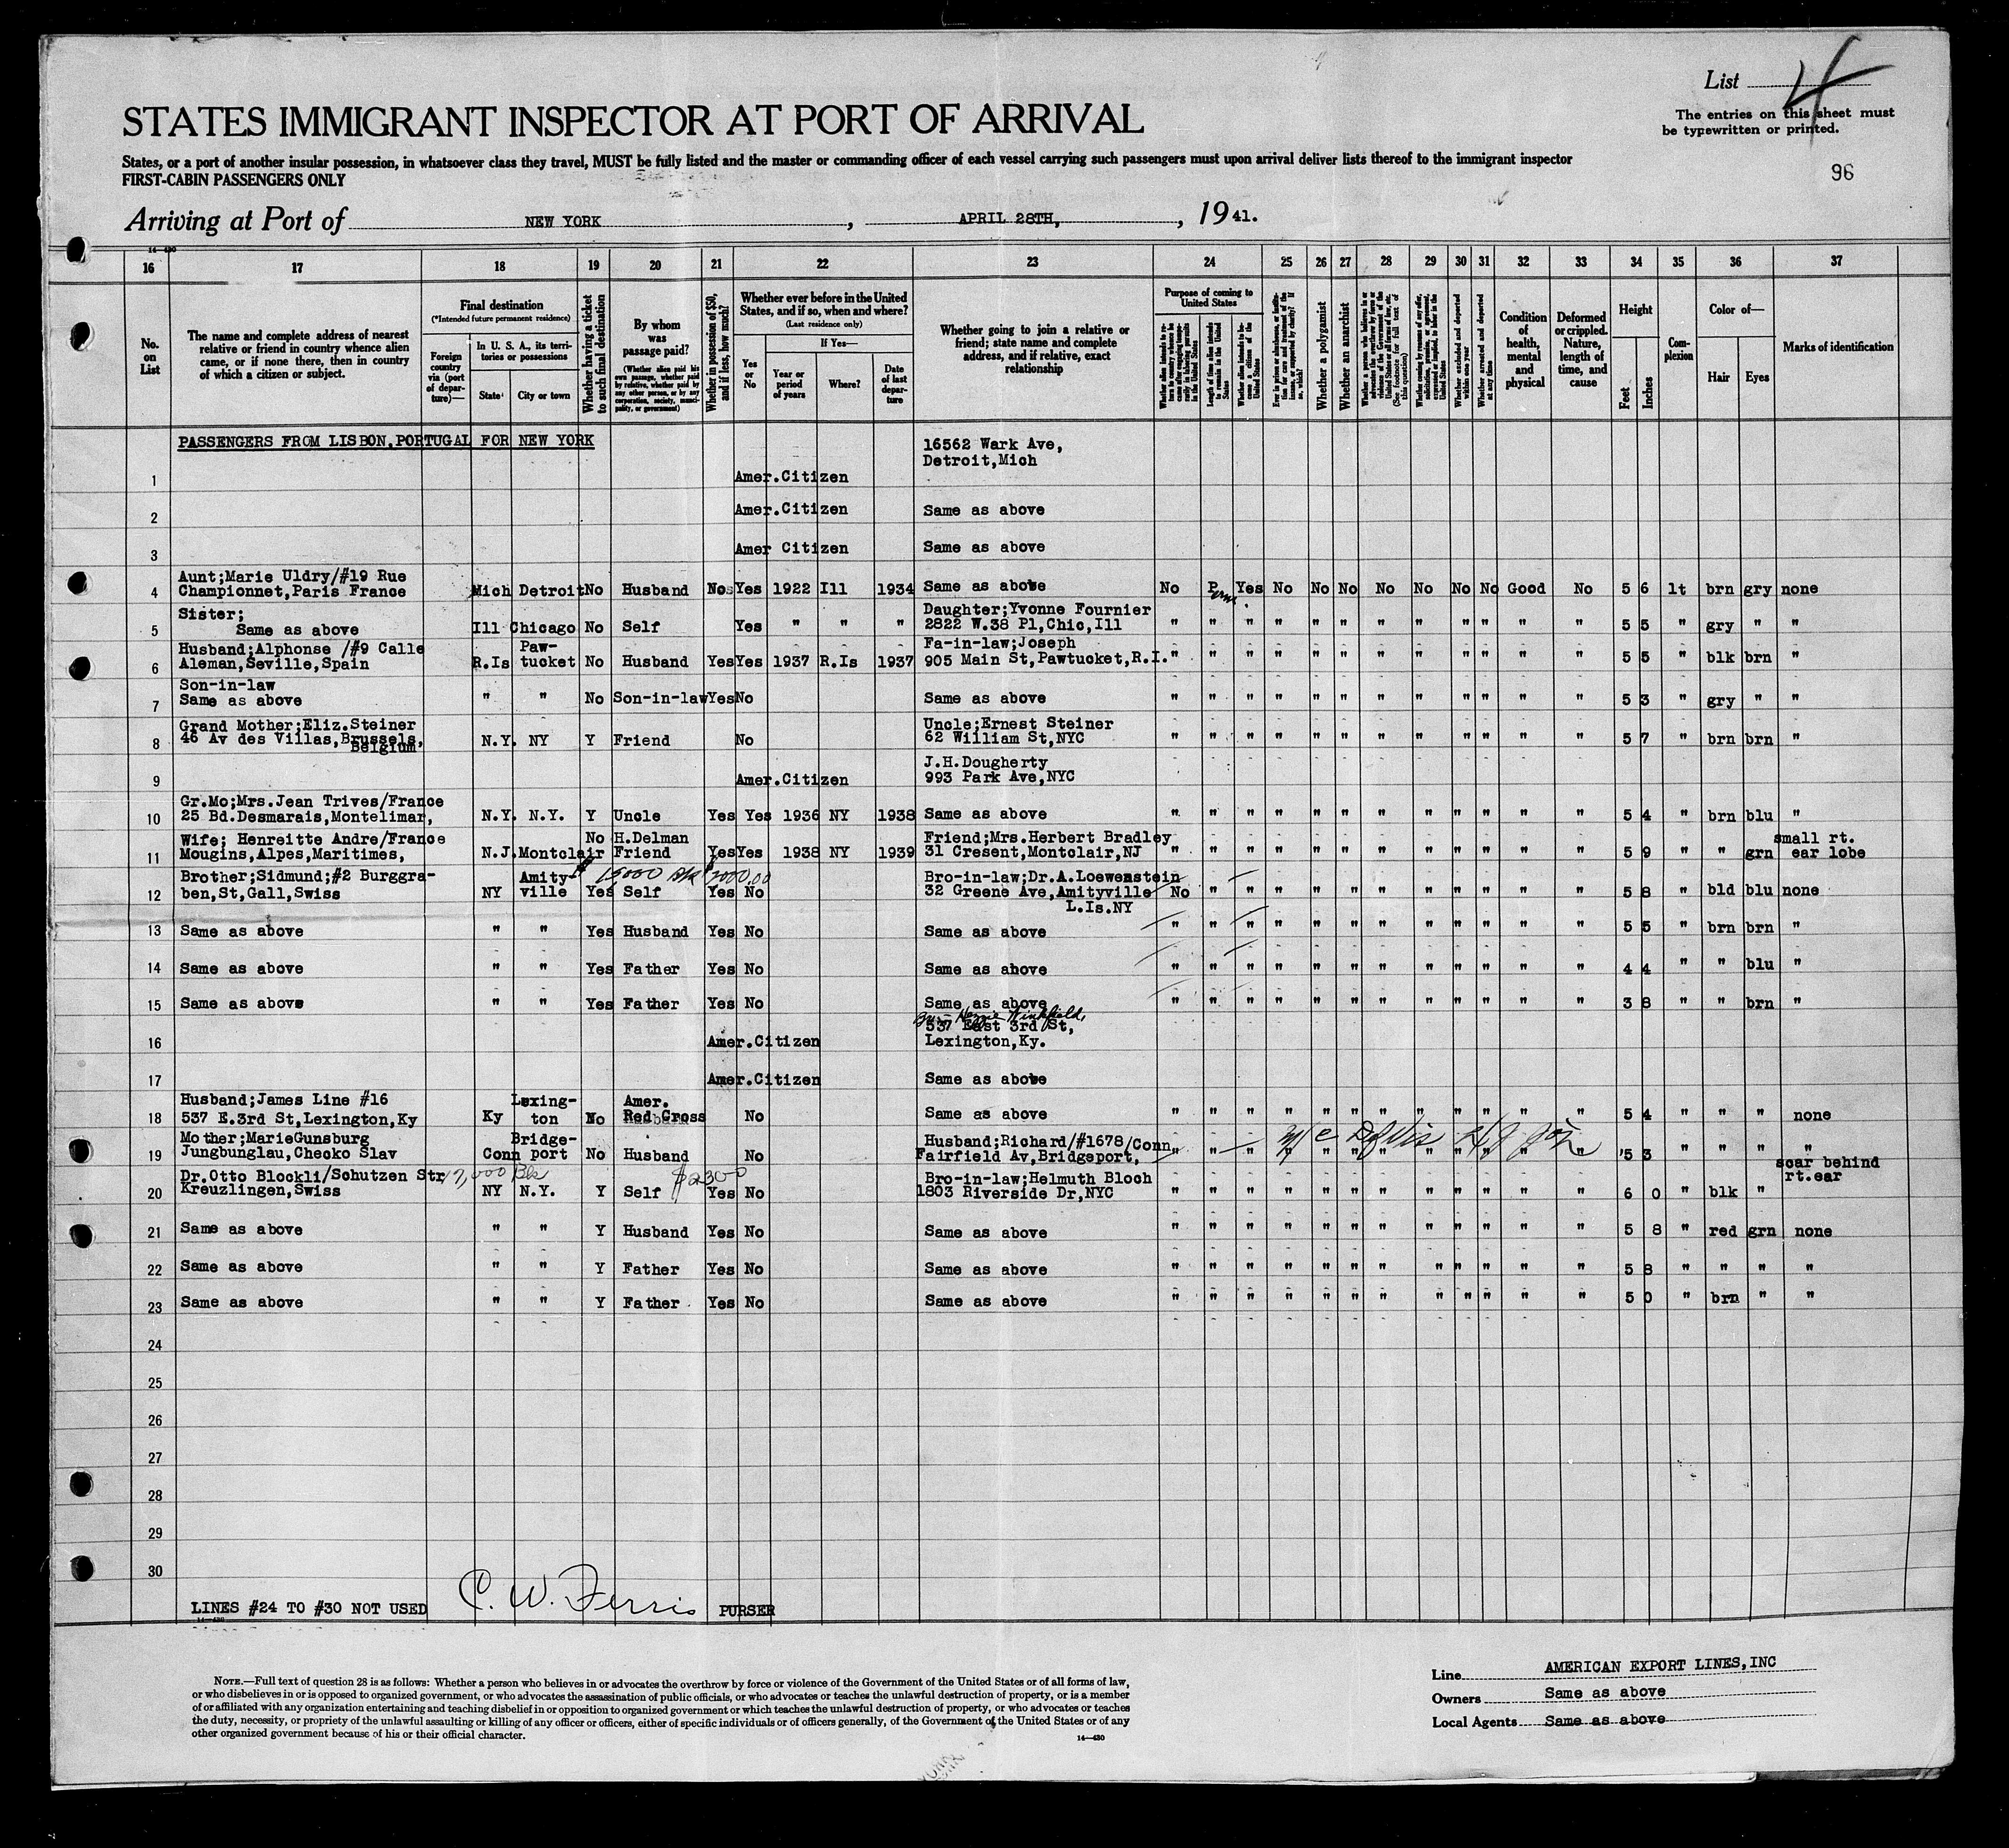 List 4
The entries on this sheet must
be typewritten or printed.
STATES IMMIGRANT INSPECTOR AT PORT OF ARRIVAL
States, or a port of another insular possession, in whatsoever class they travel, MUST be fully listed and the master or commanding officer of each vessel carrying such passengers must upon arrival deliver lists thereof to the immigrant inspector
FIRST-CABIN PASSENGERS ONLY
96
Arriving at Port of NEW YORK, APRIL 28TH, 1941.
14-430
16 17 18 19 20 21 22 23 24 25 26 27 28 29 30 31 32 33 34 35 36 37
No. on List
The name and complete address of nearest
relative or friend in country whence alien
came, or if none there, then in country
of which a citizen or subject.
Final destination
(*Intended future permanent residence)
Foreign country via (port of departure)—
In U. S. A., its territories or possessions
State
City or town
Whether having a ticket to such final destination
By whom was passage paid?
(Whether alien paid his own passage, whether paid by relative, whether paid by any other person, or by any corporation, society, municipality, or government)
Whether in possession of $50, and if less, how much?
Whether ever before in the United States, and if so, when and where?
(Last residence only)
Yes or No
If Yes—
Year or period of years
Where?
Date of last departure
Whether going to join a relative or
friend; state name and complete
address, and if relative, exact
relationship
Purpose of coming to United States
Length of time alien intends to remain in the United States
Whether alien intends to become a citizen of the United States
Whether a polygamist
Whether an anarchist
Whether excluded and deported within one year
Whether arrested and deported at any time
Condition of health, mental and physical
Deformed or crippled. Nature, length of time, and cause
Height
Feet
Inches
Complexion
Color of—
Hair
Eyes
Marks of identification
PASSENGERS FROM LISBON,PORTUGAL FOR NEW YORK
16562 Wark Ave,
Detroit,Mich
1 Amer.Citizen
2 Amer.Citizen Same as above
3 Amer Citizen Same as above
Aunt;Marie Uldry/#19 Rue
4 Championnet,Paris France Mich Detroit No Husband No Yes 1922 Ill 1934 Same as above No Perm Yes No No No No No No No Good No 5 6 lt brn gry none
Sister; Daughter;Yvonne Fournier
5 Same as above Ill Chicago No Self Yes " " " 2822 W.38 Pl,Chic,Ill " " " " " " " " " " " " 5 5 " gry " "
Husband;Alphonse /#9 Calle Paw- Fa-in-law;Joseph
6 Aleman,Seville,Spain R.Is tucket No Husband Yes Yes 1937 R.Is 1937 905 Main St,Pawtucket,R.I. " " " " " " " " " " " " 5 5 " blk brn "
Son-in-law
7 Same as above " " No Son-in-law Yes No Same as above " " " " " " " " " " " " 5 3 " gry " "
Grand Mother;Eliz.Steiner Uncle;Ernest Steiner
8 46 Av des Villas,Brussels, Belgium N.Y. NY Y Friend No 62 William St,NYC " " " " " " " " " " " " 5 7 " brn brn "
J.H.Dougherty
9 Amer.Citizen 993 Park Ave,NYC
Gr.Mo;Mrs.Jean Trives/France
10 25 Bd.Desmarais,Montelimar, N.Y. N.Y. Y Uncle Yes Yes 1936 NY 1938 Same as above " " " " " " " " " " " " 5 4 " brn blu "
Wife; Henreitte Andre/France No H.Delman Friend;Mrs.Herbert Bradley small rt.
11 Mougins,Alpes,Maritimes, N.J. Montclair Friend Yes Yes 1938 NY 1939 31 Cresent,Montclair,NJ " " " " " " " " " " " " 5 9 " " grn ear lobe
Brother;Sidmund;#2 Burggra- Amity- Bro-in-law;Dr.A.Loewenstein
12 ben,St,Gall,Swiss NY ville Yes Self Yes No 32 Greene Ave,Amityville No " " " " " " " " " " " 5 8 " bld blu none
L.Is.NY
13 Same as above " " Yes Husband Yes No Same as above " " " " " " " " " " " " 5 5 " brn brn "
14 Same as above " " Yes Father Yes No Same as above " " " " " " " " " " " " 4 4 " " blu "
15 Same as above " " Yes Father Yes No Same as above " " " " " " " " " " " " 3 8 " " brn "
537 East 3rd St,
16 Amer.Citizen Lexington,Ky.
17 Amer.Citizen Same as above
Husband;James Line #16 Lexing- Amer.
18 537 E.3rd St,Lexington,Ky Ky ton No Red Cross No Same as above " " " " " " " " " " " " 5 4 " " " none
Mother;MarieGunsburg Bridge- Husband;Richard/#1678/Conn
19 Jungbunglau,Checko Slav Conn port No Husband No Fairfield Av,Bridgeport, " " " " " " " " " " " 5 3 " " " "
Dr.Otto Blockli/Schutzen Str $2300 Bro-in-law;Helmuth Bloch scar behind
20 Kreuzlingen,Swiss NY N.Y. Y Self Yes No 1803 Riverside Dr,NYC " " " " " " " " " " " " 6 0 " blk " rt.ear
21 Same as above " " Y Husband Yes No Same as above " " " " " " " " " " " " 5 8 " red grn none
22 Same as above " " Y Father Yes No Same as above " " " " " " " " " " " " 5 8 " " " "
23 Same as above " " Y Father Yes No Same as above " " " " " " " " " " " " 5 0 " brn " "
24
25
26
27
28
29
30
LINES #24 TO #30 NOT USED C. W. Ferris PURSER
NOTE.—Full text of question 28 is as follows: Whether a person who believes in or advocates the overthrow by force or violence of the Government of the United States or of all forms of law,
or who disbelieves in or is opposed to organized government, or who advocates the assassination of public officials, or who advocates or teaches the unlawful destruction of property, or is a member
of or affiliated with any organization entertaining and teaching disbelief in or opposition to organized government or which teaches the unlawful destruction of property, or who advocates or teaches
the duty, necessity, or propriety of the unlawful assaulting or killing of any officer or officers, either of specific individuals or of officers generally, of the Government of the United States or of any
other organized government because of his or their official character.
14-430
Line AMERICAN EXPORT LINES,INC
Owners Same as above
Local Agents Same as above